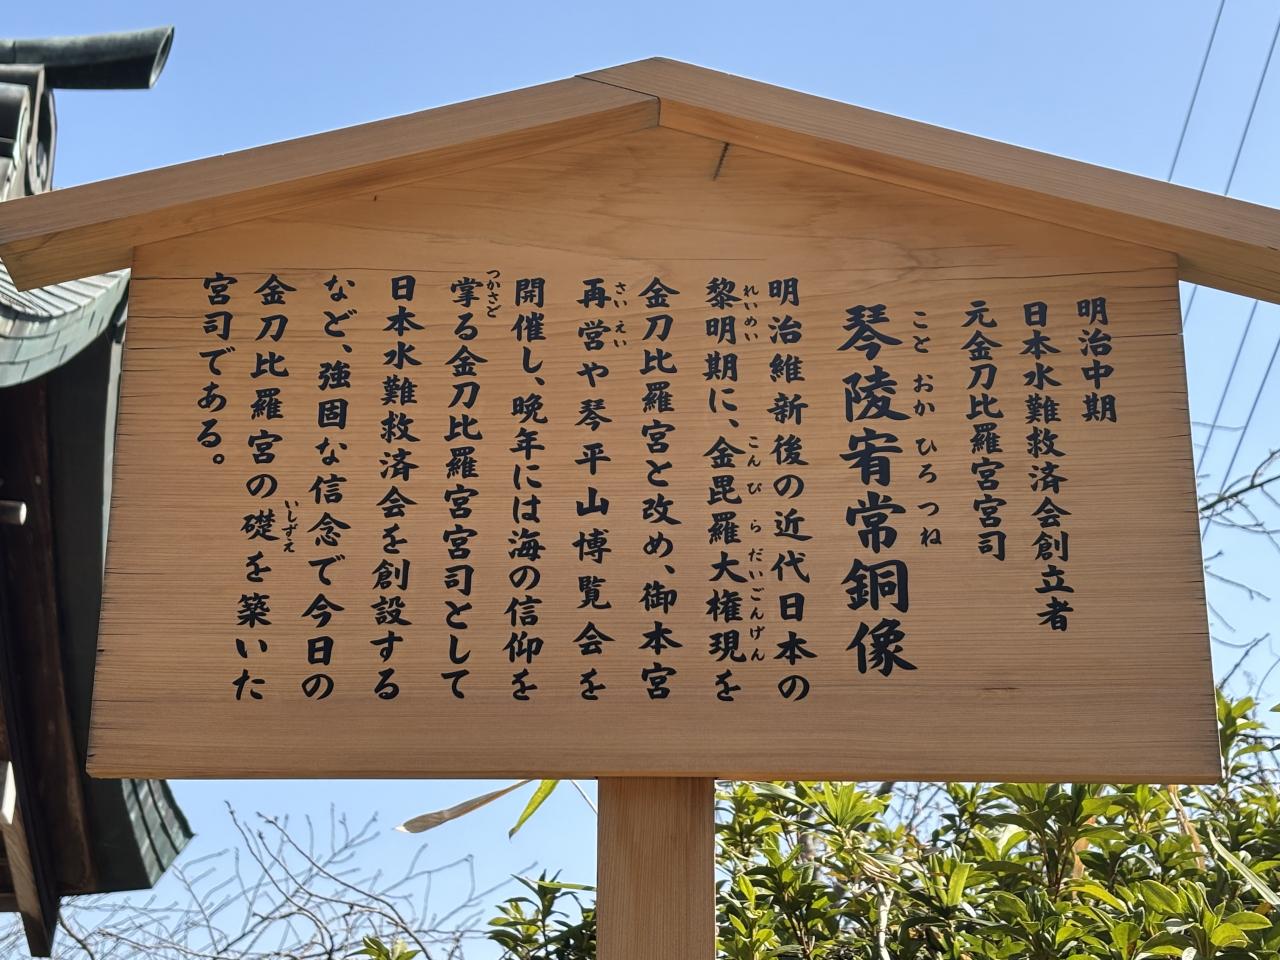 明治中期
日本水難救済会創立者
元金刀比羅宮宮司
ことおかひろつね
琴陵宥常銅像
明治維新後の近代日本の
れいめい こんぴらだいごんげん
黎明期に、金毘羅大権現を
金刀比羅宮と改め、御本宮
さいえい
再営や琴平山博覧会を
開催し、晩年には海の信仰を
つかさど
掌る金刀比羅宮宮司として
日本水難救済会を創設する
など、強固な信念で今日の
いしずえ
金刀比羅宮の礎を築いた
宮司である。